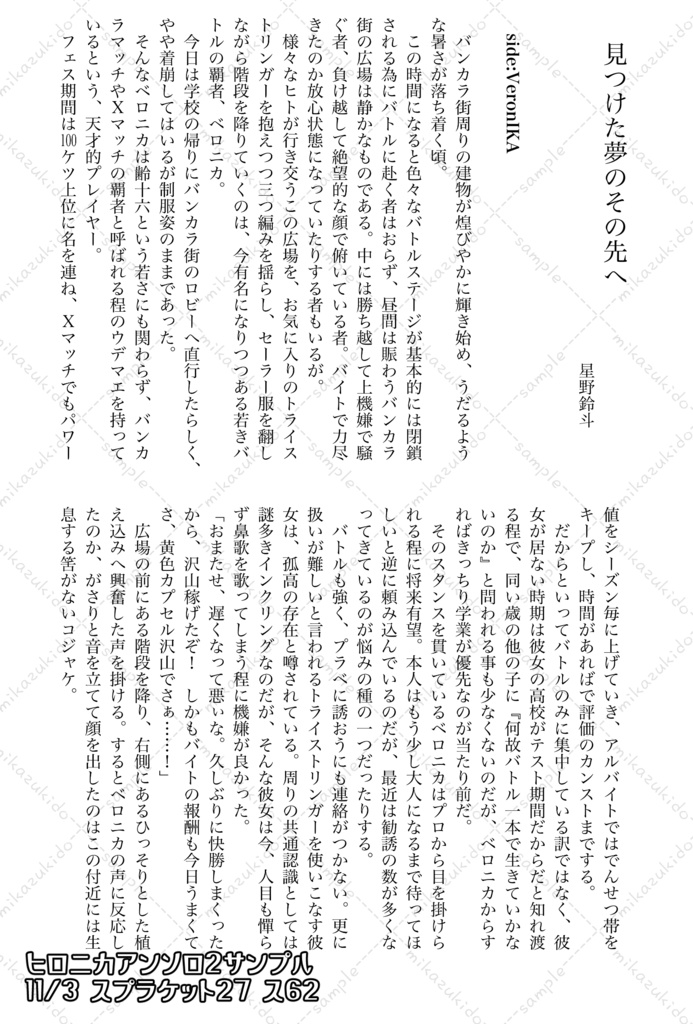 見つけた夢のその先へ
星野鈴斗
side:VeronIKA
バンカラ街周りの建物が煌びやかに輝き始め、うだるよう
な暑さが落ち着く頃。
この時間になると色々なバトルステージが基本的には閉鎖
される為にバトルに赴く者はおらず、昼間は賑わうバンカラ
街の広場は静かなものである。中には勝ち越して上機嫌で騒
ぐ者、負け越して絶望的な顔で俯いている者。バイトで力尽
きたのか放心状態になっていたりする者もいるが。
様々なヒトが行き交うこの広場を、お気に入りのトライス
トリンガーを抱えつつ三つ編みを揺らし、セーラー服を翻し
ながら階段を降りていくのは、今有名になりつつある若きバ
トルの覇者、ベロニカ。
今日は学校の帰りにバンカラ街のロビーへ直行したらしく、
やや着崩してはいるが制服姿のままであった。
そんなベロニカは齢十六という若さにも関わらず、バンカ
ラマッチやXマッチの覇者と呼ばれる程のウデマエを持って
いるという、天才的プレイヤー。
フェス期間は100ケツ上位に名を連ね、Xマッチでもパワー
値をシーズン毎に上げていき、アルバイトではでんせつ帯を
キープし、時間があればで評価のカンストまでする。
だからといってバトルのみに集中している訳ではなく、彼
女が居ない時期は彼女の高校がテスト期間だからだと知れ渡
る程で、同い歳の他の子に『何故バトル一本で生きていかな
いのか』と問われる事も少なくないのだが、ベロニカからす
ればきっちり学業が優先なのが当たり前だ。
そのスタンスを貫いているベロニカはプロから目を掛けら
れる程に将来有望。本人はもう少し大人になるまで待ってほ
しいと逆に頼み込んでいるのだが、最近は勧誘の数が多くな
ってきているのが悩みの種の一つだったりする。
バトルも強く、プラベに誘おうにも連絡がつかない。更に
扱いが難しいと言われるトライストリンガーを使いこなす彼
女は、孤高の存在と噂されている。周りの共通認識としては
謎多きインクリングなのだが、そんな彼女は今、人目も憚ら
ず鼻歌を歌ってしまう程に機嫌が良かった。
「おまたせ、遅くなって悪ぃな。久しぶりに快勝しまくった
から、沢山稼げたぞ！　しかもバイトの報酬も今日うまくて
さ、黄色カプセル沢山でさぁ……！」
広場の前にある階段を降り、右側にあるひっそりとした植
え込みへ興奮した声を掛ける。するとベロニカの声に反応し
たのか、がさりと音を立てて顔を出したのはこの付近には生
息する筈がないコジャケ。
ヒロニカアンソロ2サンプル
11/3 スプラケット27 ス62
sample
mikazuki.do